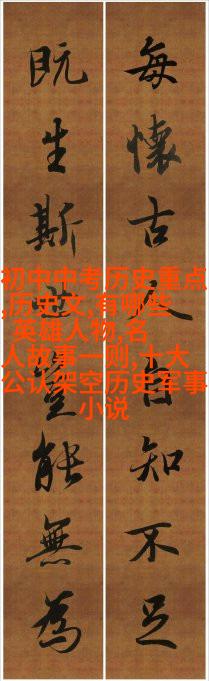 每懷古人自知不足
既生斯世豈能無為
初中中考历史重点
,历史文,有哪些
英雄人物,名
人故事一则,十大
公认架空历史军事
小说